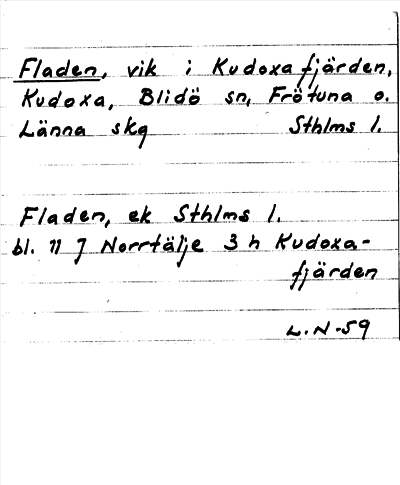 Fladen, vik i Kudoxafjärden,
Kudoxa, Blidö sn, Frötuna o.
Länna skg Sthlms l.
Fladen, ek Sthlms l.
bl. 11 J Norrtälje 3 h Kudoxa-
fjärden
L.N-59